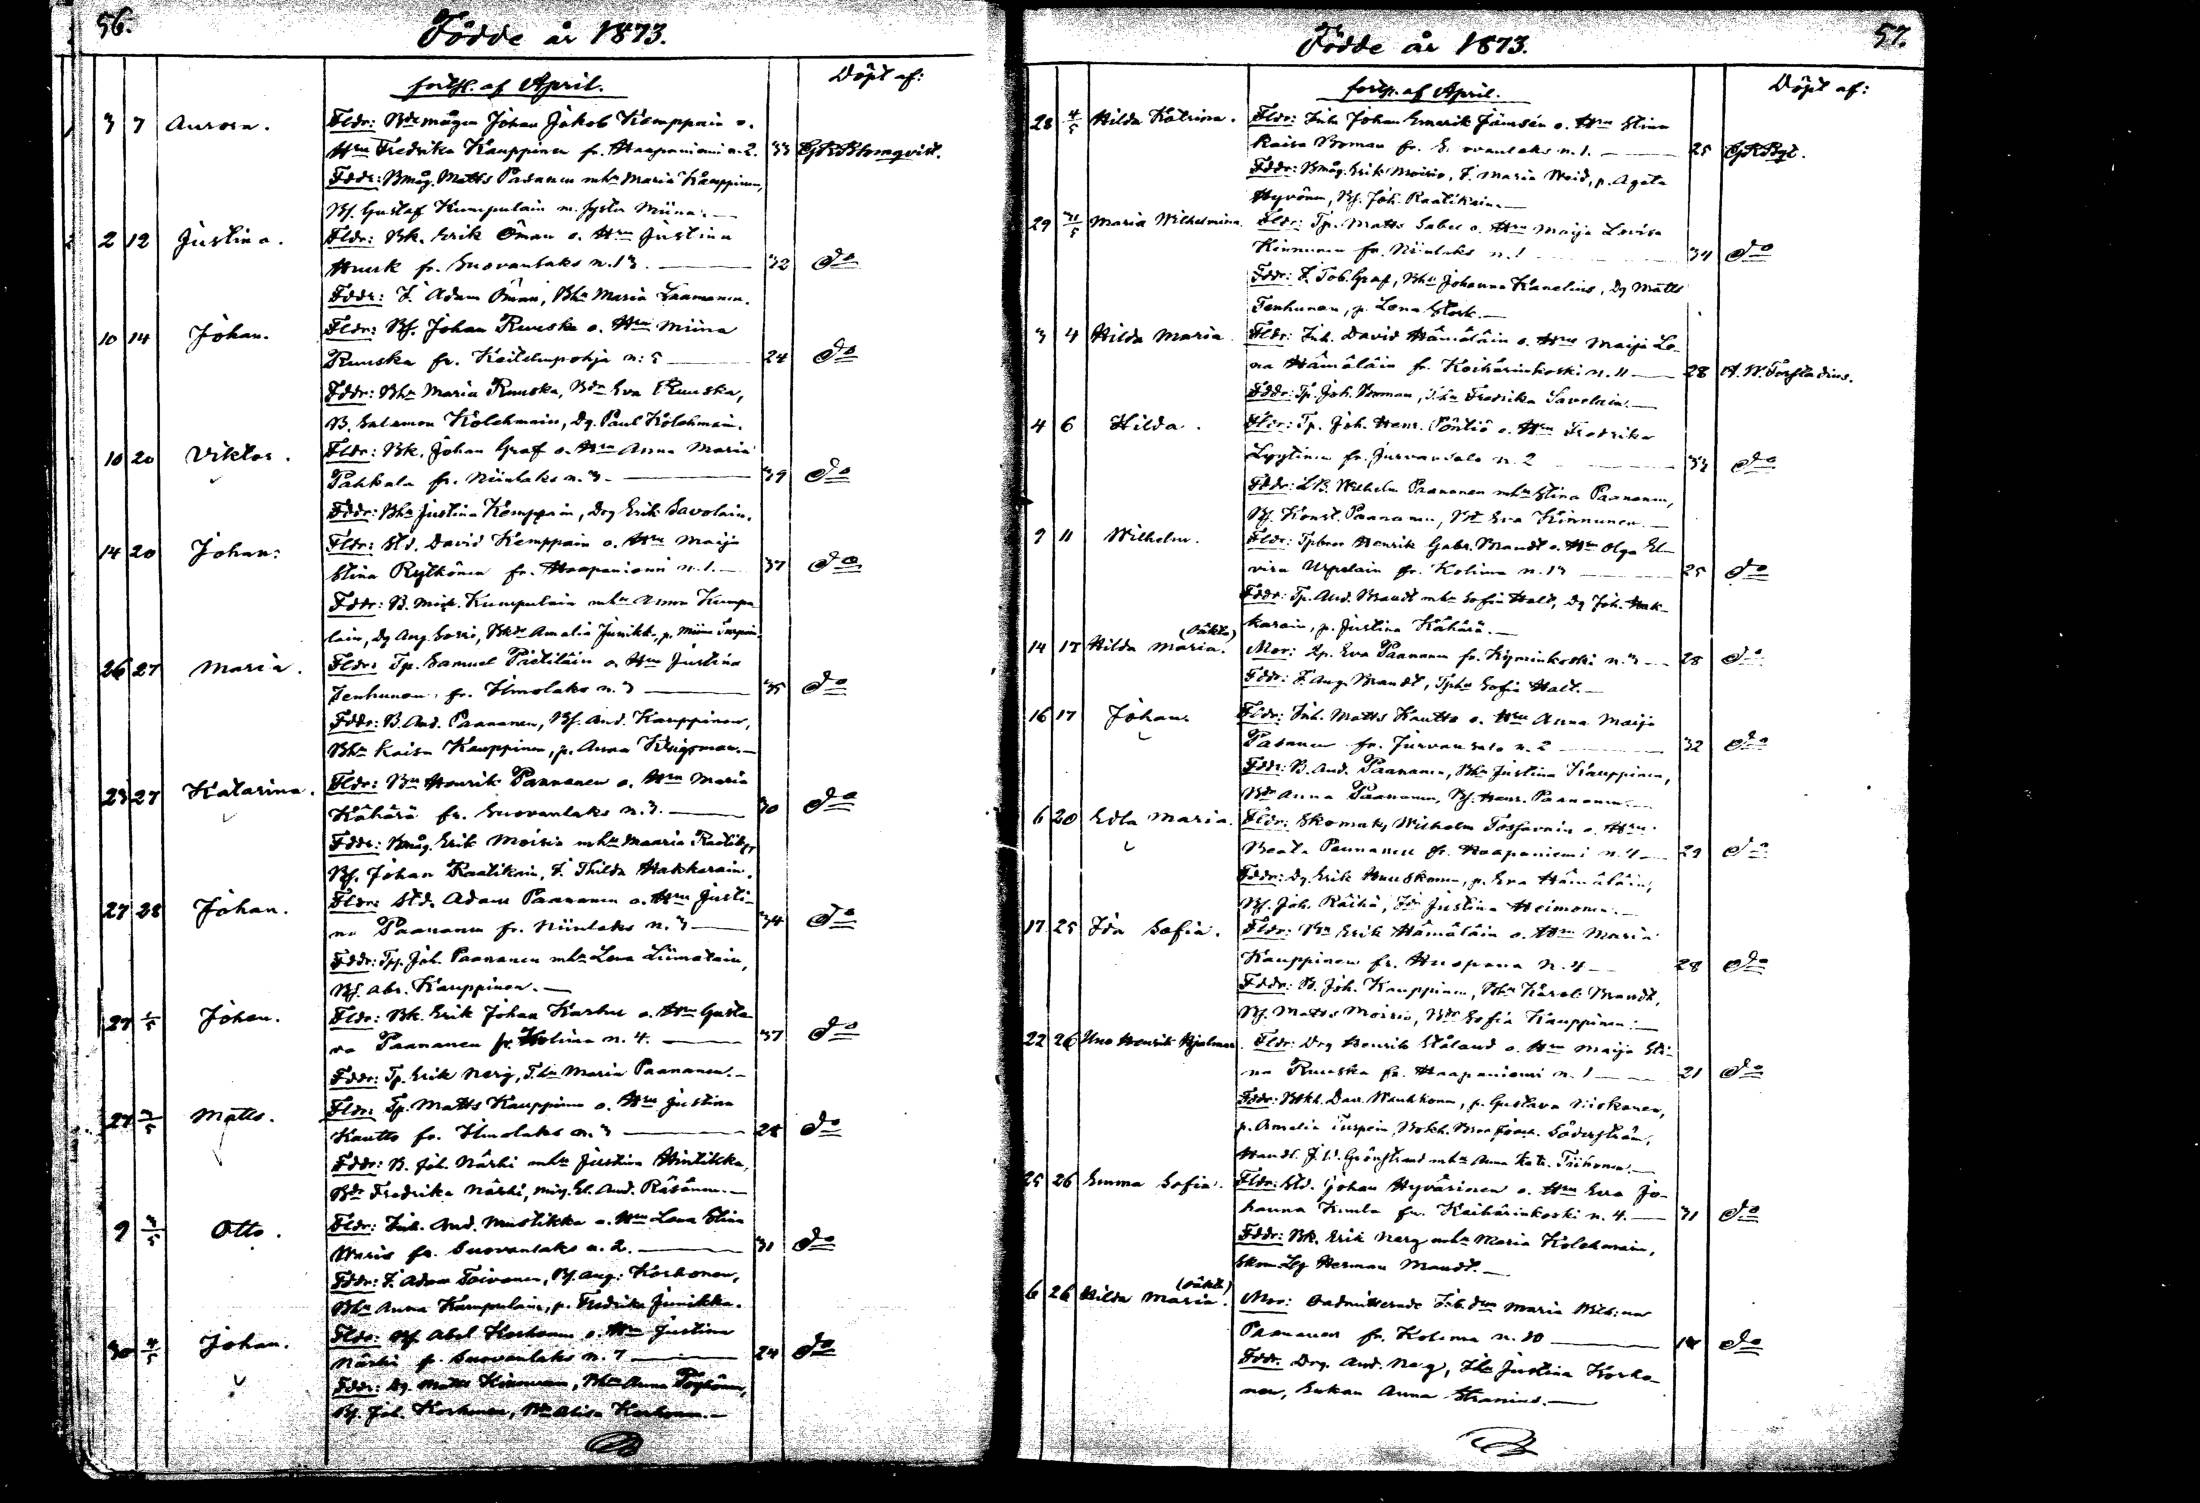 56.
Födde år 1873.
forts. af April.
Döpt af:
3 7 Aurora. Fldr: Bdemågen Johan Jakob Kemppain o.
Hru Fredrika Kauppinen fr. Haapaniemi n. 2. 33 GRBlomqvist.
Fddr: Bmåg. Matts Pasanen mhu Maria Kauppinen,
Bs. Gustaf Kumpulain m. syster Miina.
2 12 Justina. Fldr: Bk. Erik Öman o. Hru Justina
Husk fr. Suovanlaks n. 13. 32 do
Fddr: I. Adam Öman, Bhu Maria Laamanen.
10 14 Johan. Fldr: Bs. Johan Ruuska o. Hru Miina
Ruuska fr. Keitelepohja n: 5 24 do
Fddr: Bhu Maria Ruuska, Bdr Eva Ruuska,
B. Salomon Kolehmain, Dg. Paul Kolehmain.
10 20 Viktor. Fldr: Bk. Johan Graf o. Hru Anna Maria
Pahkala fr. Niinlaks n. 3. 39 do
Fddr: Bhu Justina Kemppain, Drg Erik Savolain.
14 20 Johan: Fldr: Std. David Kemppain o. Hru Maija
Stina Rytkönen fr. Haapaniemi n. 1. 37 do
Fddr: B. Mich. Kumpulain mhu Anna Kumpu-
lain, Dg Aug. Sorri, Bkdr Amalia Junikka, p. Miina Turpein.
26 27 Maria. Fldr: Tp. Samuel Pietiläin o. Hru Justina
Tenhunen fr. Ilmolaks n. 3 35 do
Fddr: B. And. Paananen, Bs. And. Kauppinen,
Bhu Kaisa Kauppinen, p. Anna Krigsman.
23 27 Katarina. Fldr: Bn Henrik Paananen o. Hru Maria
Kähärä fr. Suovanlaks n. 3. 30 do
Fddr: Bmåg. Erik Moisio mhu Maaria Raatik,
Bs. Johan Raatikain, I. Thilda Hakkarain.
27 28 Johan. Fldr: Std. Adam Paananen o. Hru Justi-
na Paananen fr. Niinlaks n. 3 34 do
Fddr: Tp. Joh. Paananen mhu Lena Liimatain,
Bs. Abr. Kauppinen.
27 1/5 Johan. Fldr: Bk. Erik Johan Karhu o. Hru Gusta-
va Paananen fr. Kolima n. 4. 37 do
Fddr: Tp. Erik Nerg, T.hu Maria Paananen.
27 2/5 Matts. Fldr: Tp. Matts Kauppinen o. Hru Justina
Kautto fr. Ilmolaks n. 3 28 do
Fddr: B. Joh. Närhi mhu Justina Hintikka,
Bdr Fredrika Närhi, And. Räsänen.
9 3/5 Otto. Fldr: Inh. And. Mustikka o. Hru Lena Stina
Waris fr. Suovanlaks n. 2. 31 do
Fddr: I. Adam Toivanen, Bs. Aug. Korhonen,
Bhu Anna Kumpulain, p. Fredrika Junikka.
30 4/5 Johan. Fldr: Bs. Abel Korhonen o. Hru Justina
Närhi fr. Suovanlaks n. 7 24 do
Fddr: Dg. Matts Kinnunen, Bhu Anna Pöyhönen,
Bs. Joh. Korhonen, Bdr Alisa Korhonen.
57.
Födde år 1873.
forts. af April.
Döpt af:
28 4/5 Hilda Katrina. Fldr: Inh. Johan Emerik Jämsén o. Hru Stina
Kaisa Boman fr. Suovanlaks n. 1. 25 GRBqt.
Fddr: Bmåg. Erik Moisio, I. Maria Weid, p. Agata
Hyvönen, Bs. Joh. Raatikain.
29 31/5 Maria Wilhelmina. Fldr: Tp. Matts Sabel o. Hru Maija Lovisa
Kinnunen fr. Niinlaks n. 1 34 do
Fddr: I. Tob. Graf, Bhu Johanna Kanelius, Dg Matts
Tenhunen, p. Lena Stork.
3 4 Hilda Maria. Fldr: Inh. David Hämäläin o. Hru Maija Le-
na Hämäläin fr. Keihärinkoski n. 11 28 A. W. Forstadius.
Fddr: Tp. Joh. Boman, I.hu Fredrika Savolain.
4 6 Hilda. Fldr: Tp. Joh. Henr. Pöntiö o. Hru Fredrika
Lyytinen fr. Jurvansalo n. 2 33 do
Fddr: LB. Wilhelm Paananen mhu Stina Paananen,
Bs. Konst. Paananen, Bdr Eva Kinnunen.
9 11 Wilhelm. Fldr: Tpbror Henrik Gabr. Brandt o. Hru Olga El-
vira Urpelain fr. Kolima n. 13 25 do
Fddr: Tp. And. Brandt mhu Sofia Halt, Dg Joh. Hak-
karain, p. Justina Kähärä.
(oäkta)
14 17 Hilda Maria. Mor: Ip. Eva Paananen fr. Kyminkoski n. 3 28 do
Fddr: I. Aug. Brandt, Tphu Sofia Halt.
16 17 Johan. Fldr: Inh. Matts Kautto o. Hru Anna Maija
Pasanen fr. Jurvansalo n. 2 32 do
Fddr: B. And. Paananen, Bhu Justina Kauppinen,
Bdr Anna Paananen, Bs. Henr. Paananen.
6 20 Edla Maria. Fldr: Skomak. Wilhelm Tossavain o. Hru
Beata Paananen fr. Haapaniemi n. 4 29 do
Fddr: Dg. Erik Huuskonen, p. Eva Hämäläin,
Bs. Joh. Räihä, Idr Justina Heimonen.
17 25 Ida Sofia. Fldr: Bn Erik Hämäläin o. Hru Maria
Kauppinen fr. Huopana n. 4 28 do
Fddr: B. Joh. Kauppinen, Bhu Karol. Brandt,
Bs. Matts Moisio, Bdr Sofia Kauppinen.
22 26 Uno Henrik Hjalmar. Fldr: Drg Henrik Ståland o. Hru Maija Sti-
na Ruuska fr. Haapaniemi n. 1 21 do
Fddr: Bokh. Dav. Wauhkonen, p. Gustava Niskanen,
p. Amalia Turpein, Bokh. Söderström,
Handl. J. W. Grönstrand mhu Anna Kata. Tiihonen.
25 26 Emma Sofia. Fldr: Std. Johan Hyvärinen o. Hru Eva Jo-
hanna Kumla fr. Keihärinkoski n. 4. 31 do
Fddr: Bk. Erik Nerg mhu Maria Kolehmain,
Skom. Lg Herman Mandt.
(oäkta)
6 26 Hilda Maria. Mor: Oadmitterade Inh.dtr Maria Wilh:na
Paananen fr. Kolima n. 10 18 do
Fddr. Drg. And. Nerg, Ihu Justina Korho-
nen, Enkan Anna Stranius.